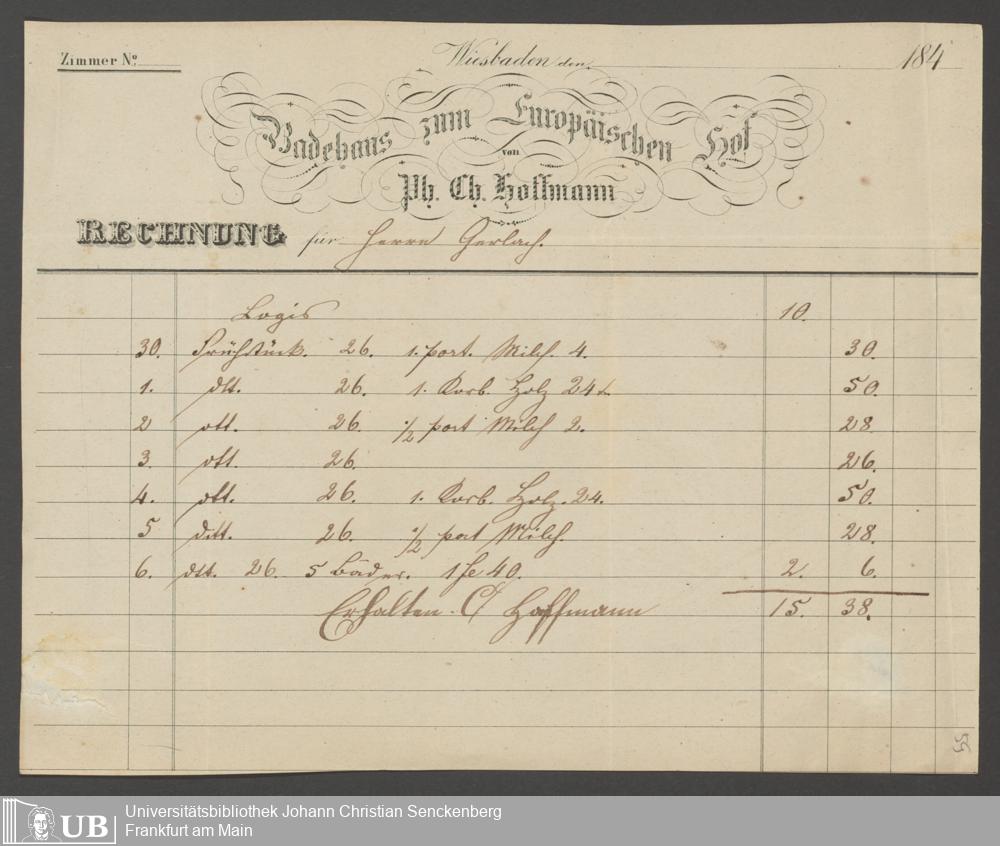 Zimmer No.
Wiesbaden den 184
Badehaus zum Europäischen Hof
von
Ph. Ch. Hoffmann
RECHNUNG für Herrn Gerlach.
Logis 10.
30. Frühstück. 26. 1. port. Milch. 4. 30.
1. dtt. 26. 1. Korb. Holz 24 50.
2 dtt. 26. 1/2 port Milch 2. 28.
3. dtt. 26. 26.
4. dtt. 26. 1. Korb. Holz. 24. 50.
5 ditt. 26. 1/2 port Milch. 28.
6. dtt. 26. 5 Bäder. 1 fl 40. 2. 6.
Erhalten. Hoffmann 15. 38.
UB
Universitätsbibliothek Johann Christian Senckenberg
Frankfurt am Main